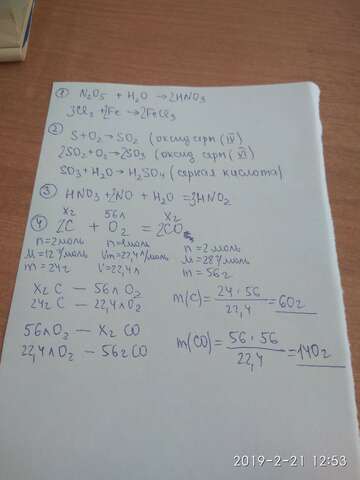 ① N₂O₅ + H₂O → 2HNO₃
3Cl₂ + 2Fe → 2FeCl₃
② S + O₂ → SO₂ (оксид серы (IV)
2SO₂ + O₂ → 2SO₃ (оксид серы (VI)
SO₃ + H₂O → H₂SO₄ (серная кислота)
③ HNO₃ + 2NO + H₂O = 3HNO₂
④ x г 56 л x г
2C + O₂ = 2CO
n = 2 моль n = 1 моль n = 2 моль
M = 12 г/моль Vm = 22,4 л/моль M = 28 г/моль
m = 24 г V = 22,4 л m = 56 г
x г C — 56 л O₂
24 г C — 22,4 л O₂
m(C) = 24 · 56 / 22,4 = 60 г
56 л O₂ — x г CO
22,4 л O₂ — 56 г CO
m(CO) = 56 · 56 / 22,4 = 140 г
2019-2-21 12:53